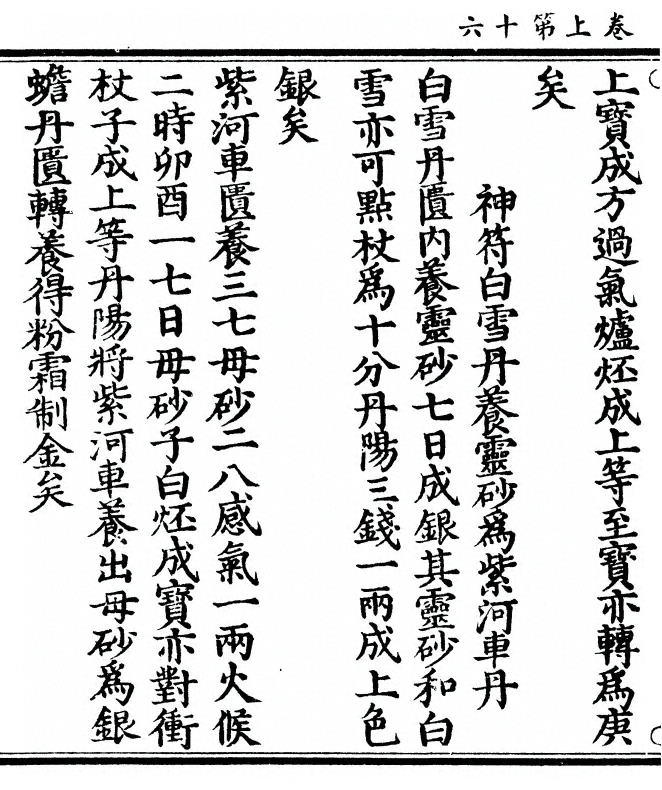 卷上第十六
上寶成方過氣爐烴成上等至寶亦轉爲庚
矣
神符白雪丹養靈砂爲紫河車丹
白雪丹匱内養靈砂七日成銀其靈砂和白
雪亦可點杖爲十分丹陽三錢一兩成上色
銀矣
紫河車匱養三七母砂二八感氣一兩火候
二時卯酉一七日母砂子白烴成寶亦對衝
杖子成上等丹陽將紫河車養出母砂爲銀
蟾丹匱轉養得粉霜制金矣